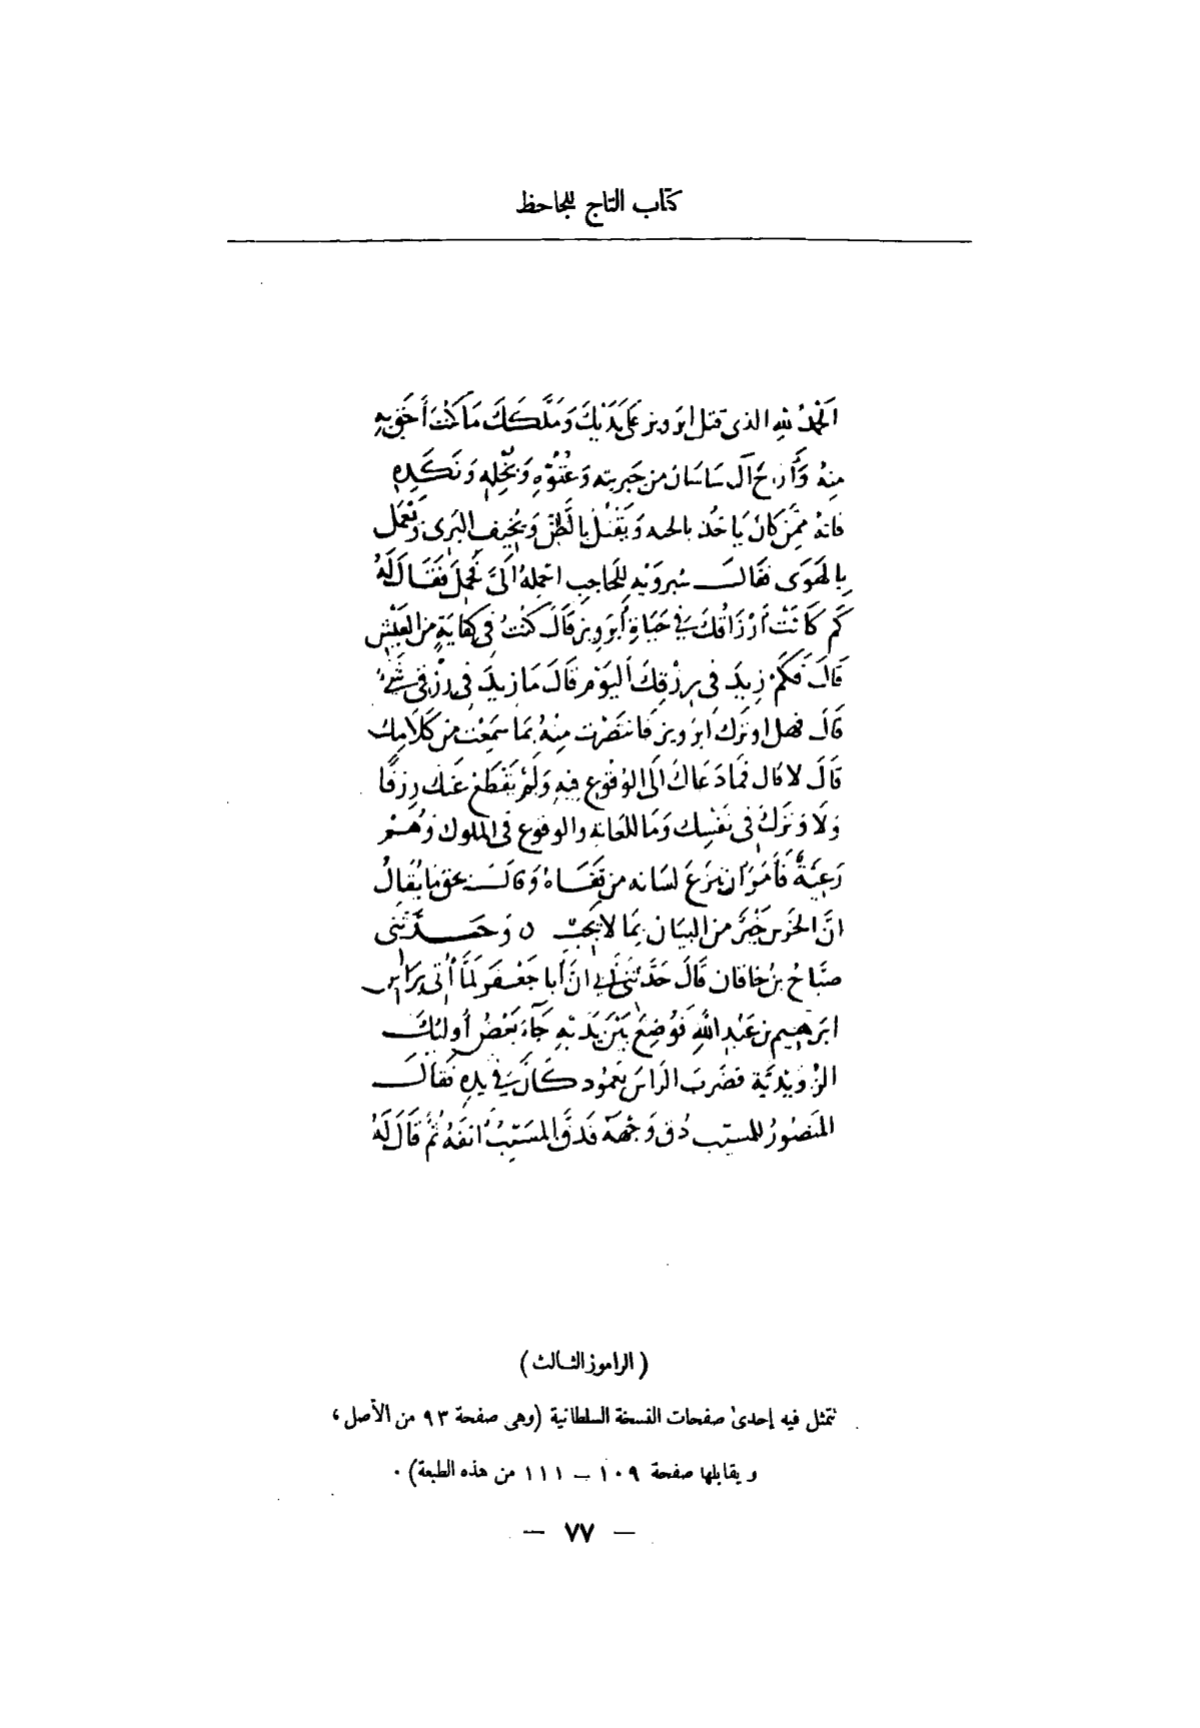 كتاب التاج للجاحظ
اَلحَمْدُ لله الذى قتل ابرويز عَلَى يَدَيْكَ وَمَلَّكَكَ مَا كُنْتَ أَحَق بِهِ
مِنهُ وَأَرَاحَ آلَ سَاسَان من جَبريته وَعُتُوِّهِ وَبُخْلِهِ وَنَكَدِهِ
فانهُ مِمَّن كَانَ يَاخُذ بالحبه وَيَقْتُلُ بِالظَّنِّ وَيُخِيفُ البَرِى وَيَعْمَل
بِالهَوَى فقَالَ شيرويه لِلحَاجِب احْمِلهُ الَىَّ فحُمِلَ فَقَالَ لَهُ
كَم كَانَتْ أَرْزَاقُكَ فِي حَيَاةِ أَبَرويز قَالَ كُنْتُ فِى كِفَايَةٍ مِن العَيْشِ
قَالَ فَكَمْ زِيدَ فى رِزْقِكَ اليَوْمَ قَالَ مَا زِيدَ فِى رِزْقى شَىْءٌ
قَالَ فهل اوتَرك ابرويز فانتَصَرْت مِنْهُ بَمَا سَمِعْتُ من كَلَامِك
قَالَ لا قال فَمَا دَعَاكَ الَى الوُقُوعِ فِيهِ وَلَمْ يَقْطَعْ عَنك رِزقًا
وَلَا وَتَرَكَ فى نَفْسِك وَمَا للعَامَّة والوقوعِ فى الملوك وَهُمْ
رَعِيَّةٌ فَأَمَرَ ان يُنزَعَ لسَانه من قَفَاهُ وَقَالَ بحق مَا يُقَالُ
انَّ الخَرَس خَيْرٌ من البيَان بِمَا لا يَجِبُ ٥ وَحَدَّثَنِى
صَبَّاحُ بنُ خاقان قَالَ حَدَّثَنِى أَبِى انَّ أَبا جَعْفَر لَمَّا أُتِىَ بِرَاسِ
ابرَهِيم بن عَبدِ اللَّهِ فَوُضِعَ بَيْنَ يَدَيْهِ جَآءَ بَعْضُ أُولئِكَ
الرَّوَنْدِيَّة فضَرَبَ الرَاسَ بعَمُودٍ كَانَ فِى يَدِهِ فَقَالَ
المَنصُورُ للمسيّب دُقَّ وَجْهَهُ فَدَقَّ المُسَيَّبُ انفَهُ ثُمَّ قَالَ لَهُ
(الراموز الثالث)
تتمثل فيه إحدى صفحات النسخة السلطانية (وهى صفحة ٩٣ من الأصل ،
ويقابلها صفحة ١٠٩ – ١١١ من هذه الطبعة) .
— ٧٧ —